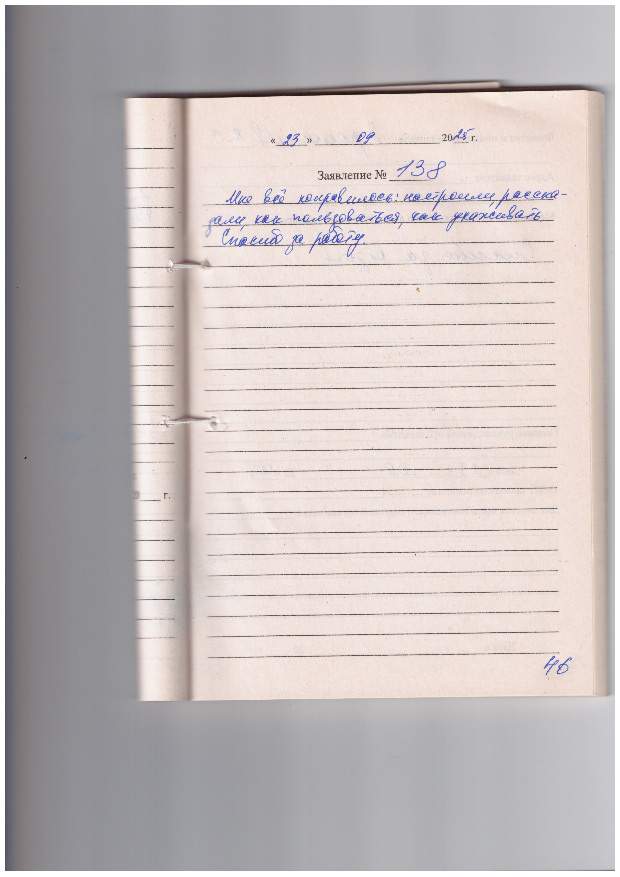 « 23 » 09 2025 г.
Заявление № 138
Мне всё понравилось: настроили, расска-
зали, как пользоваться, как ухаживать.
Спасибо за работу.
г.
46